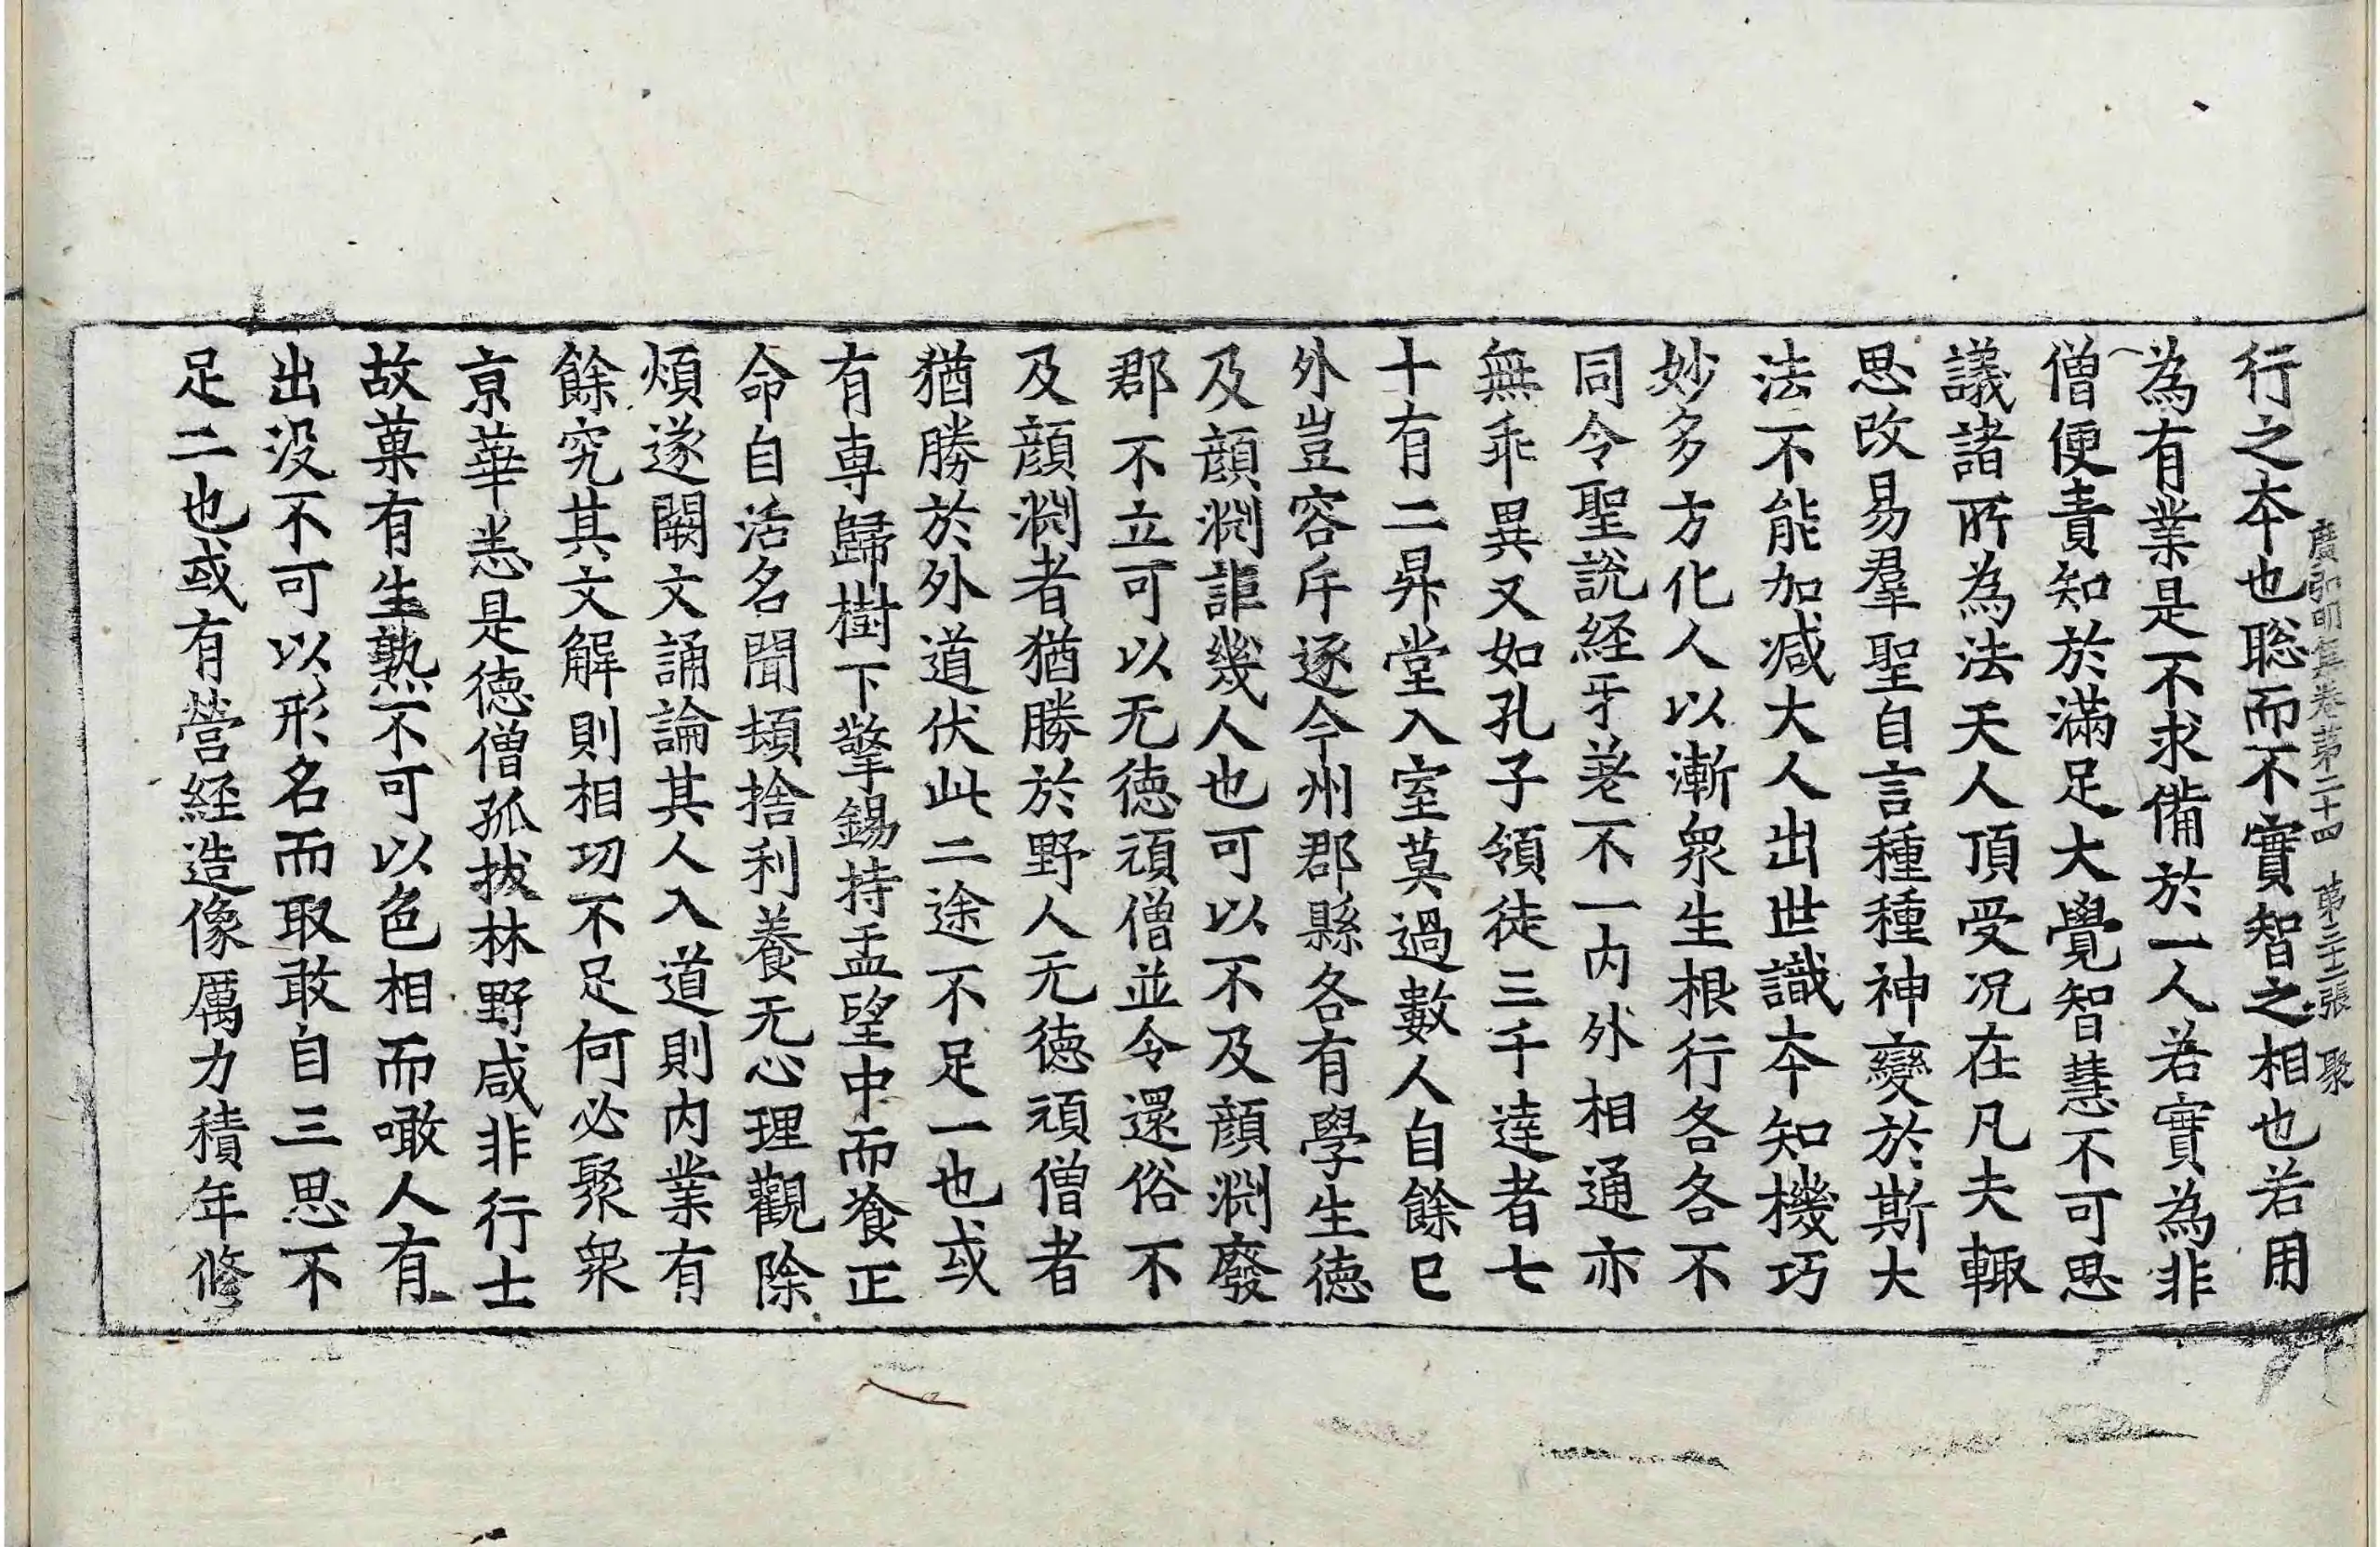 廣弘明集卷第二十四　第二十二張　聚
行之本也聡而不實智之相也若用
為有業是不求備於一人若實為非
僧便責知於滿足大覺智慧不可思
議諸所為法天人頂受况在凡夫輙
思改易羣聖自言種種神變於斯大
法不能加減大人出世識本知機巧
妙多方化人以漸衆生根行各各不
同令聖說経牙差不一内外相通亦
無乖異又如孔子領徒三千達者七
十有二昇堂入室莫過數人自餘已
外豈容斥逐今州郡縣各有學生德
及顔渊詎幾人也可以不及顔渊廢
郡不立可以无德頑僧並令還俗不
及顔渊者猶勝於野人无德頑僧者
猶勝於外道伏此二途不足一也或
有専歸樹下擎錫持盂望中而飡正
命自活名聞頓捨利養无心理觀除
煩遂闕文誦論其人入道則内業有
餘究其文解則相切不足何必聚衆
亰華恙是德僧孤拔林野咸非行士
故菓有生熟不可以色相而噉人有
出没不可以形名而取敢自三思不
足二也或有營経造像厲力積年修